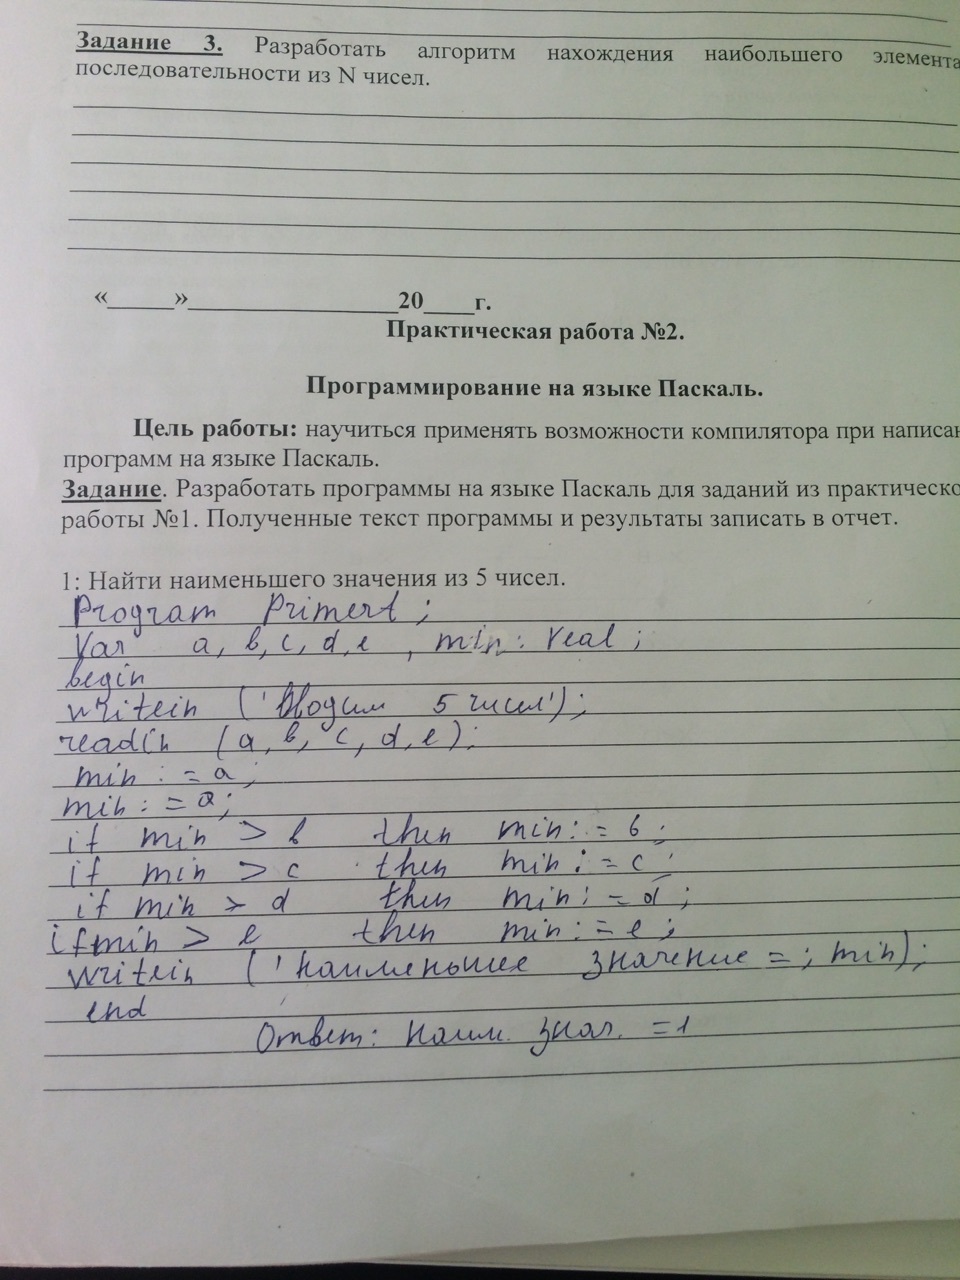 Задание 3. Разработать алгоритм нахождения наибольшего элемента
последовательности из N чисел.
«_____»________________20____г.
Практическая работа №2.
Программирование на языке Паскаль.
Цель работы: научиться применять возможности компилятора при написан
программ на языке Паскаль.
Задание. Разработать программы на языке Паскаль для заданий из практическо
работы №1. Полученные текст программы и результаты записать в отчет.
1: Найти наименьшего значения из 5 чисел.
Program Primer1;
Var a, b, c, d, e, min: real;
begin
writeln ('Вводим 5 чисел');
readln (a, b, c, d, e);
min := a;
min := a;
if min > b then min := b;
if min > c then min := c;
if min > d then min := d;
if min > e then min := e;
writeln ('наименьшее значение =; min);
end
Ответ: наим. знач. = 1